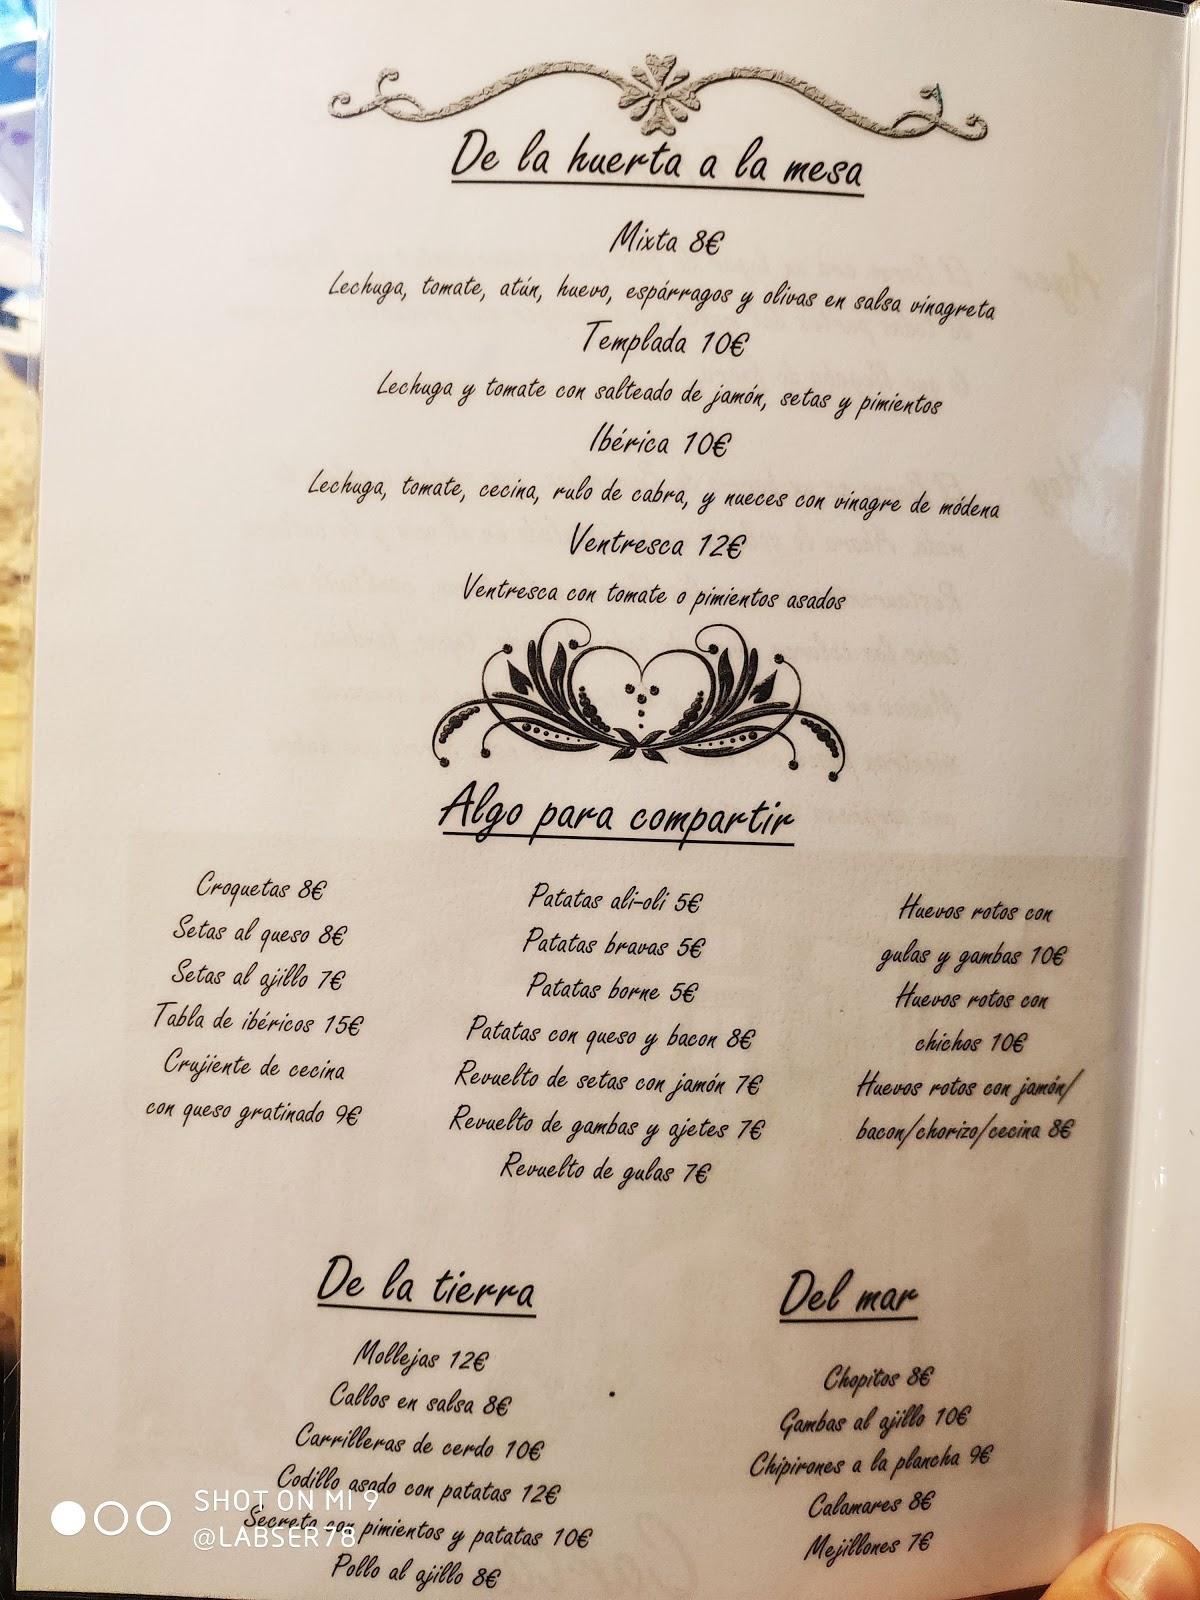 De la huerta a la mesa
Mixta 8€
Lechuga, tomate, atún, huevo, espárragos y olivas en salsa vinagreta
Templada 10€
Lechuga y tomate con salteado de jamón, setas y pimientos
Ibérica 10€
Lechuga, tomate, cecina, rulo de cabra, y nueces con vinagre de módena
Ventresca 12€
Ventresca con tomate o pimientos asados
Algo para compartir
Croquetas 8€
Setas al queso 8€
Setas al ajillo 7€
Tabla de ibéricos 15€
Crujiente de cecina
con queso gratinado 9€
Patatas ali-oli 5€
Patatas bravas 5€
Patatas borne 5€
Patatas con queso y bacon 8€
Revuelto de setas con jamón 7€
Revuelto de gambas y ajetes 7€
Revuelto de gulas 7€
Huevos rotos con
gulas y gambas 10€
Huevos rotos con
chichos 10€
Huevos rotos con jamón/
bacon/chorizo/cecina 8€
De la tierra
Mollejas 12€
Callos en salsa 8€
Carrilleras de cerdo 10€
Codillo asado con patatas 12€
Secreto con pimientos y patatas 10€
Pollo al ajillo 8€
Del mar
Chopitos 8€
Gambas al ajillo 10€
Chipirones a la plancha 9€
Calamares 8€
Mejillones 7€
SHOT ON MI 9
@LABSER78